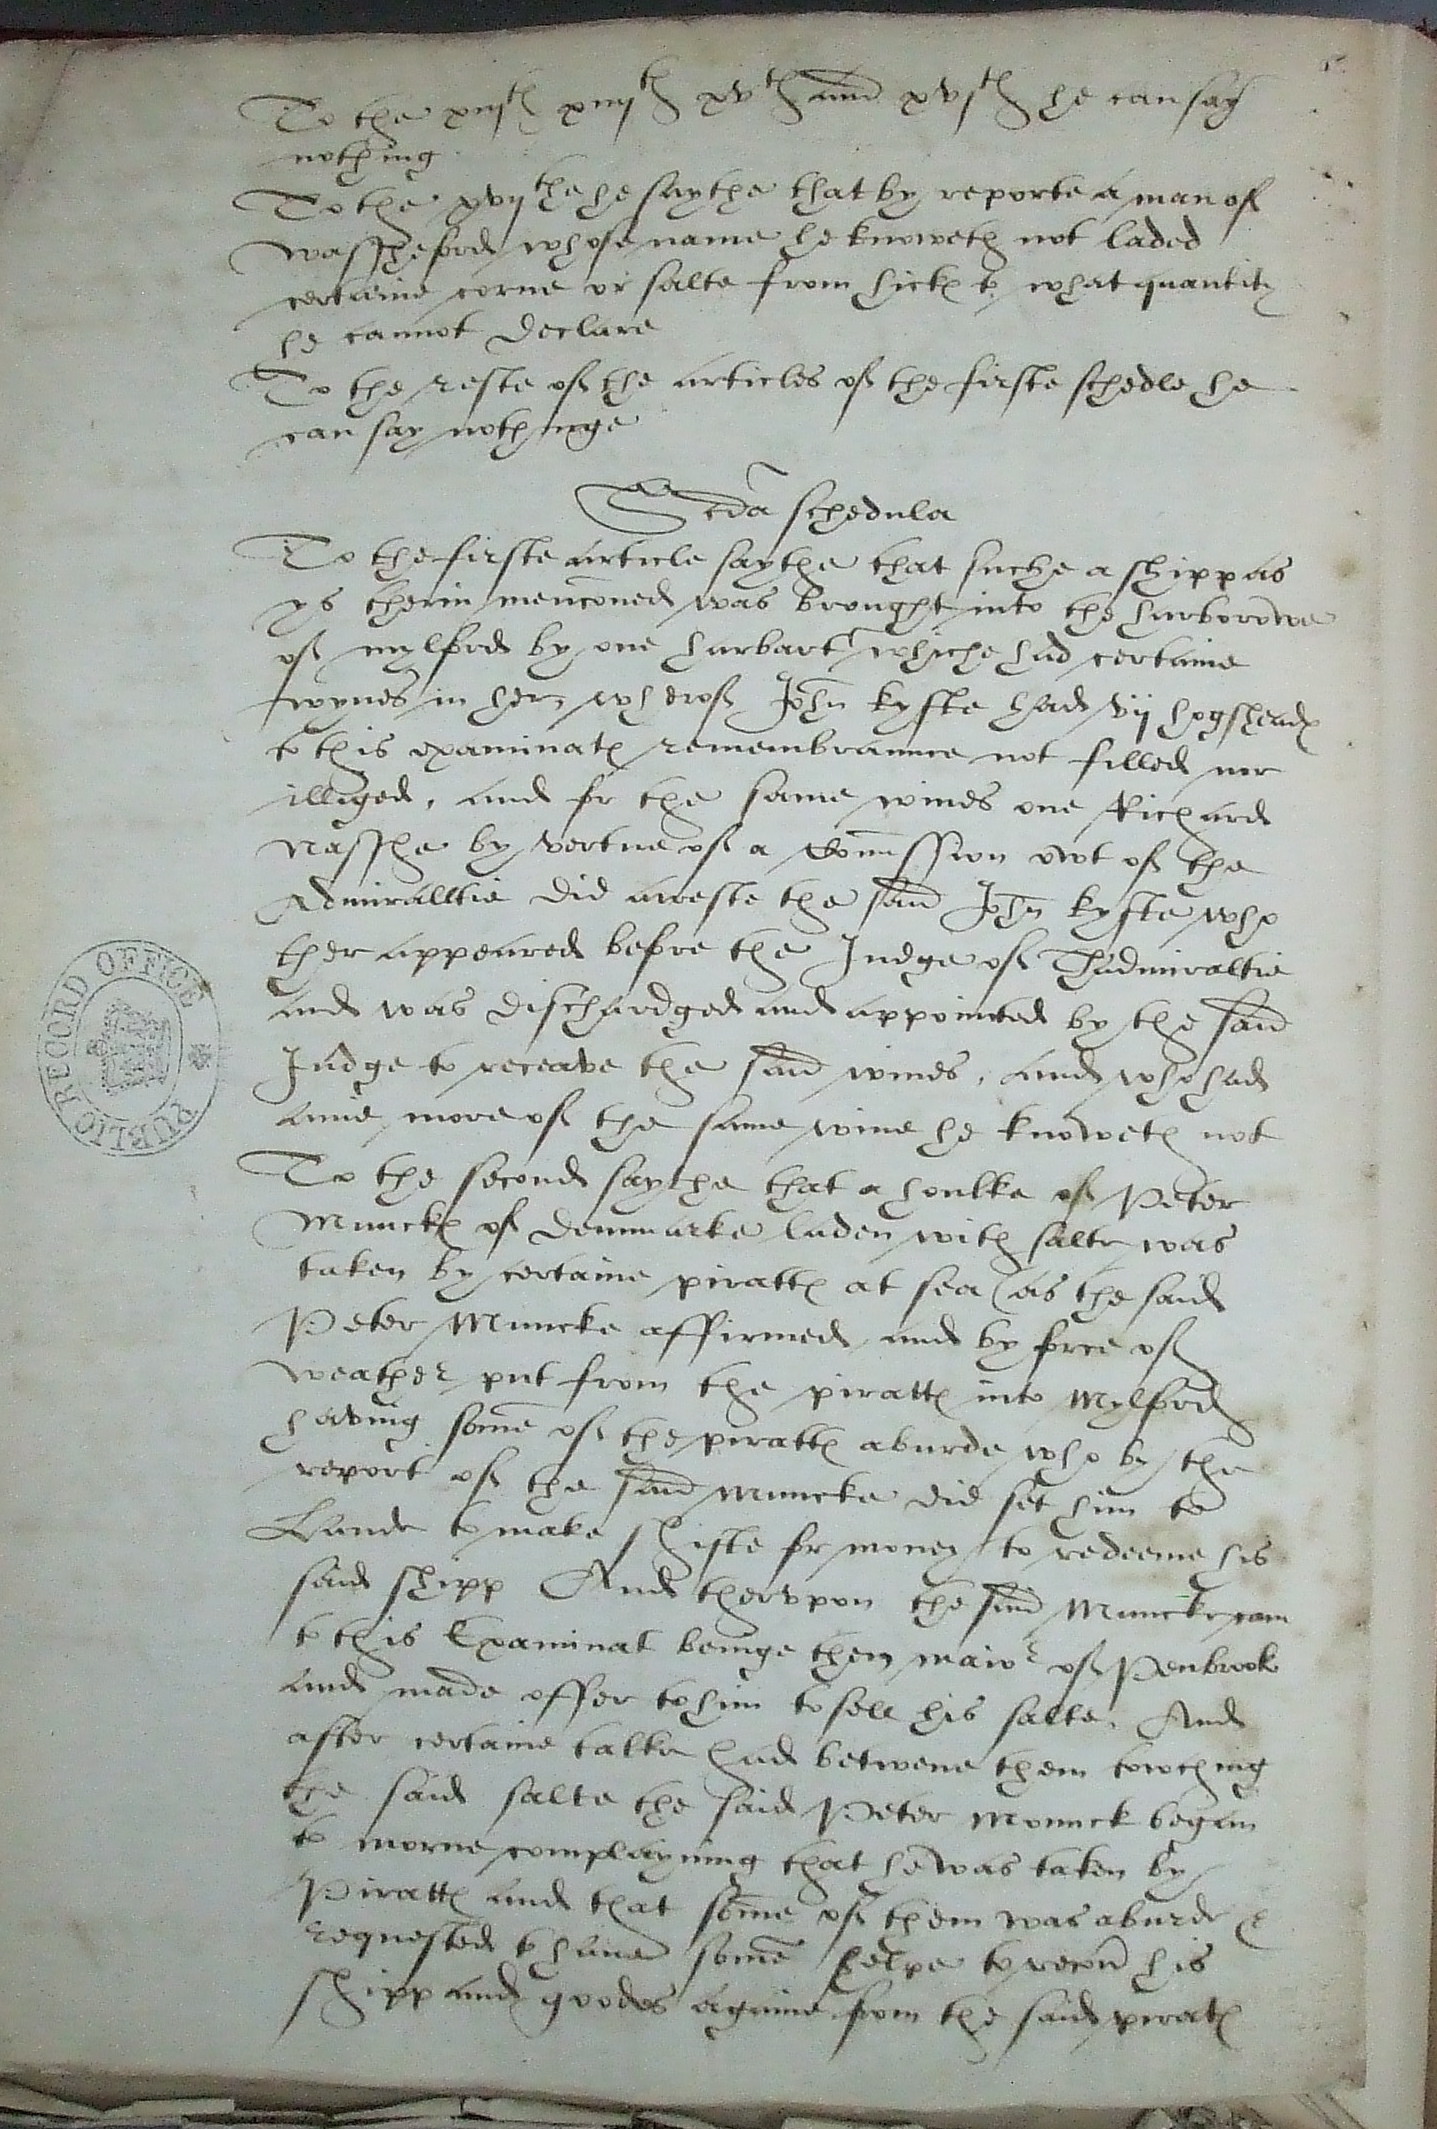 To the xiijth xiiijth xvth and xvjth he can say
nothing
To the xvijthe he saythe that by reporte a man of
wassheford whose name he knoweth not laded
certaine corne or salte from hick to what quantity
he cannot declare
To the reste of the articles of the firste schedle he
can say nothinge
Scda schedula
To the firste article saythe that suche a shipp as
ys therin menconed was brought into the harborowe
of mylford by one harbart whiche had certaine
wynes in her wherof John kyfte had vij hogsheads
to this examinats remembraunce not filled nor
illiged, and for the same wines one Richard
Nasshe by vertue of a Comission owt of the
Admiralltie did areste the said John kyfte who
ther appeared before the Judge of Thadmiraltie
and was dischardged and appointed by the said
Judge to receave the said wines, and who had
anie more of the same wine he knoweth not
To the second saythe that a houlke of Peter
Munck of denmarke laden with salte was
taken by certaine piratts at sea (as the said
Peter Muncke affirmed and by force of
weather put from the piratts into Mylford
having some of the piratts aburde who by the
report of the said Muncke did set him to
Lande to make shifte for money to redeeme his
said shipp And thervpon the said Muncke cam
to this Examinat beinge then maior of Penbrook
and made offer to him to sell his salte. And
after certaine talke had betwene them towching
the said salte the said Peter Monnck began
to morne complayning that he was taken by
Piratts and that some of them was aburde &
requested to have some helpe to recover his
shipp and goodes againe from the said pirats
PUBLIC RECORD OFFICE